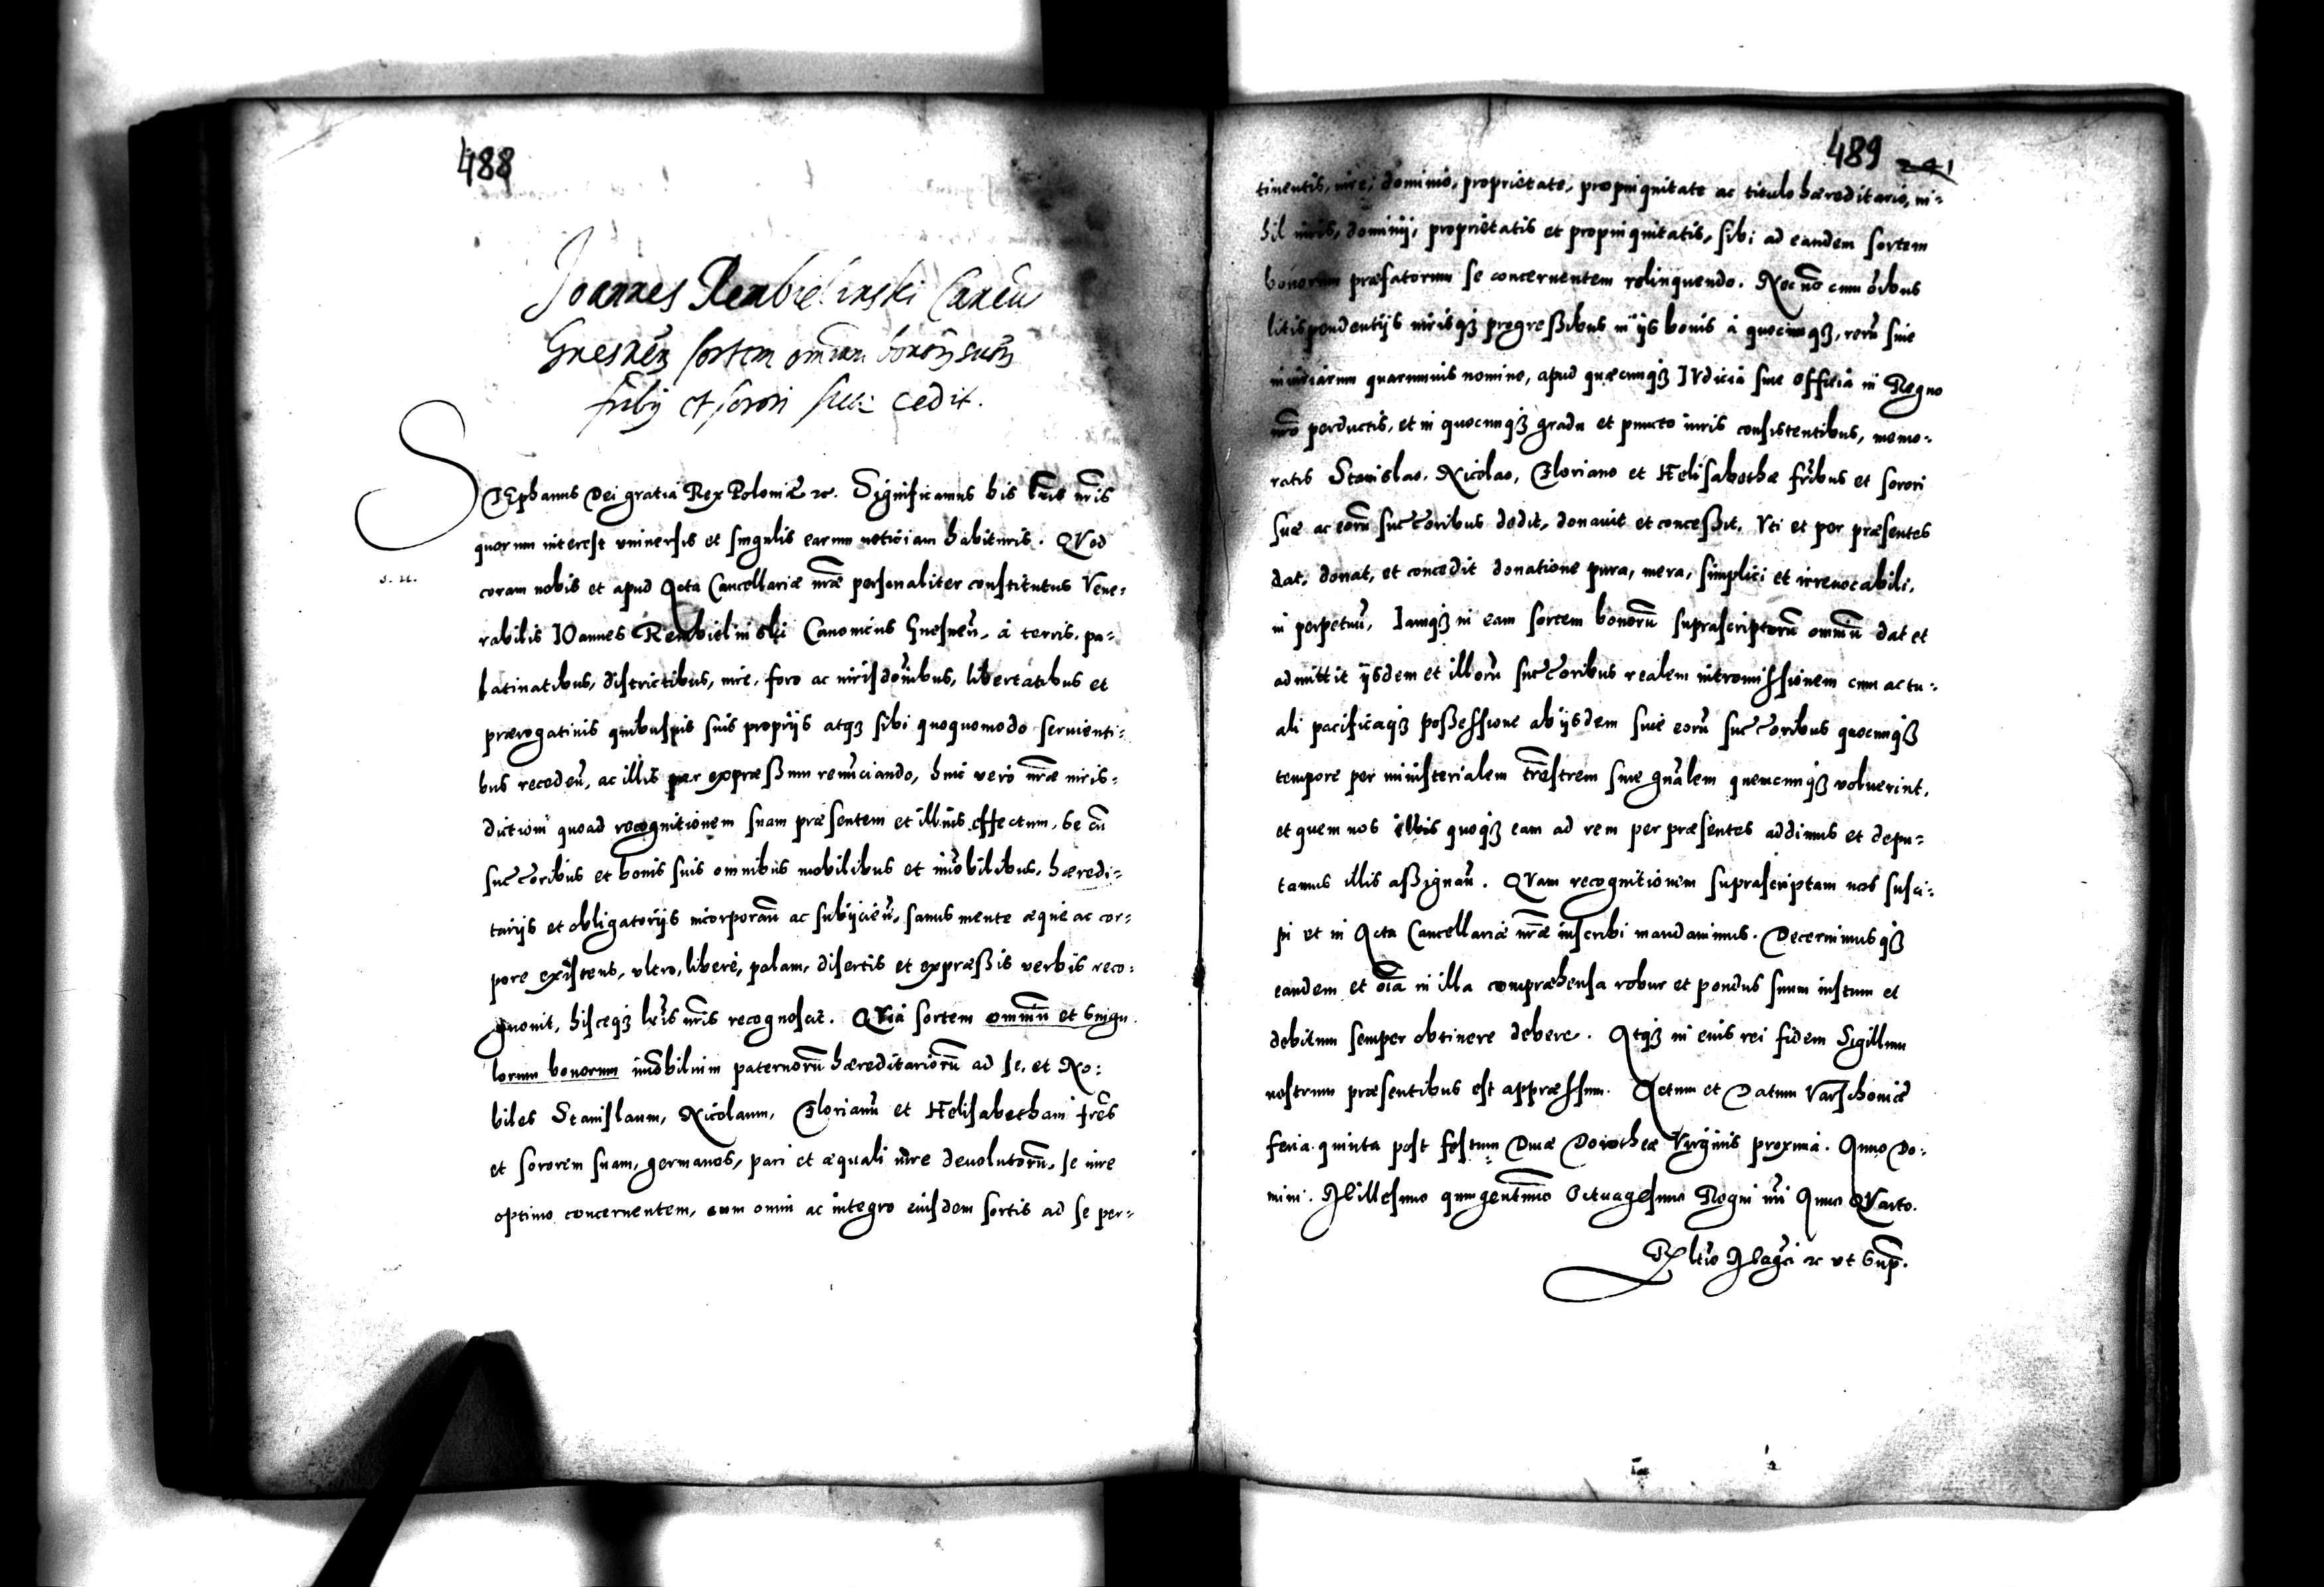 488
Joannes Rembielinski Canōn
Gnesnēn sortem omnium bonorū suorū
frībꝫ et sorori suæ cedit.
STEphanus Dei gratia Rex Poloniæ ꝛc. Significamus his lr̄is nr̄is
quorum interest vniuersis et singulis earum notitiam habituris. QVod
s. u.
coram nobis et apud Acta Cancellariæ nr̄æ personaliter constitutus Vene-
rabilis IOannes Rembielinski Canonicus Gnesnēn, à terris, pa-
latinatibus, districtibus, iure, foro ac iurisdōnibus, libertatibus et
prærogatiuis quibusuis suis proprijs atqꝫ sibi quoquomodo seruienti-
bus recedēn, ac illis per expræßum renūciando, huic verò nr̄æ iuris-
dictioni quoad recognitionem suam præsentem et illius effectum, se cū
succōribus et bonis suis omnibus mobilibus et imōbilibus, hæredi-
tarijs et obligatorijs incorporān ac subijciēn, sanus mente æquè ac cor-
pore existens, vltro, liberè, palam, disertis et expræßis verbis reco-
gnouit, hisceqꝫ lr̄is nr̄is recognoscit. QVia sortem omniū et singu-
lorum bonorum imōbilium paternorū hæreditariorū ad se, et No-
biles Stanislaum, Nicolaum, Florianū et Helisabetham fr̄es
et sororem suam, germanos, pari et æquali iure deuolutorū, se iure
optimo concernentem, cum omni ac integro eiusdem sortis ad se per-
489 241
tinentis, iure, dominio, proprietate, propinquitate ac titulo hæreditario, ni-
hil iuris, dominij, proprietatis et propinquitatis, sibi ad eandem sortem
bonorum præfatorum se concernentem relinquendo. Nec nō cum ōibus
litispendentijs iurisqꝫ progreßibus in ijs bonis à quocunqꝫ, rerū siue
iniuriarum quarumuis nomine, apud quæcunqꝫ IVdicia siue officia in Regno
nr̄o perductis, et in quocunqꝫ gradu et puncto iuris consistentibus, memo-
ratis Stanislao, Nicolao, Floriano et Helisabethæ fr̄ibus et sorori
suæ ac eorū succōribus dedit, donauit et conceßit, Vti et per præsentes
dat, donat, et concedit donatione pura, mera, simplici et irreuocabili,
in perpetuū, Iamqꝫ in eam sortem bonorū suprascriptorū omniū dat et
admittit ijsdem et illorū succōribus realem intromissionem cum actu-
ali pacificaqꝫ poßessione ab ijsdem siue eorū succōribus quocunqꝫ
tempore per ministerialem tr̄estrem siue gn̄alem quemcunqꝫ voluerint,
et quem nos illis quoqꝫ eam ad rem per præsentes addimus et depu-
tamus illis aßignān. QVam recognitionem suprascriptam nos susci-
pi et in Acta Cancellariæ nr̄æ inscribi mandauimus. Decernimusqꝫ
eandem et oīa in illa compræhensa robur et pondus suum iustum et
debitum semper obtinere debere. Atqꝫ in eius rei fidem Sigillum
nostrum præsentibus est appræssum. Actum et Datum Varschouiæ
feria quinta post festum Diuæ Dorotheæ Virginis proxima. Anno Do-
mini. Millesimo quingentēsimo Octuagesimo Regni nr̄i Anno QVarto.
Rltio Magci ꝛc vt Sup.